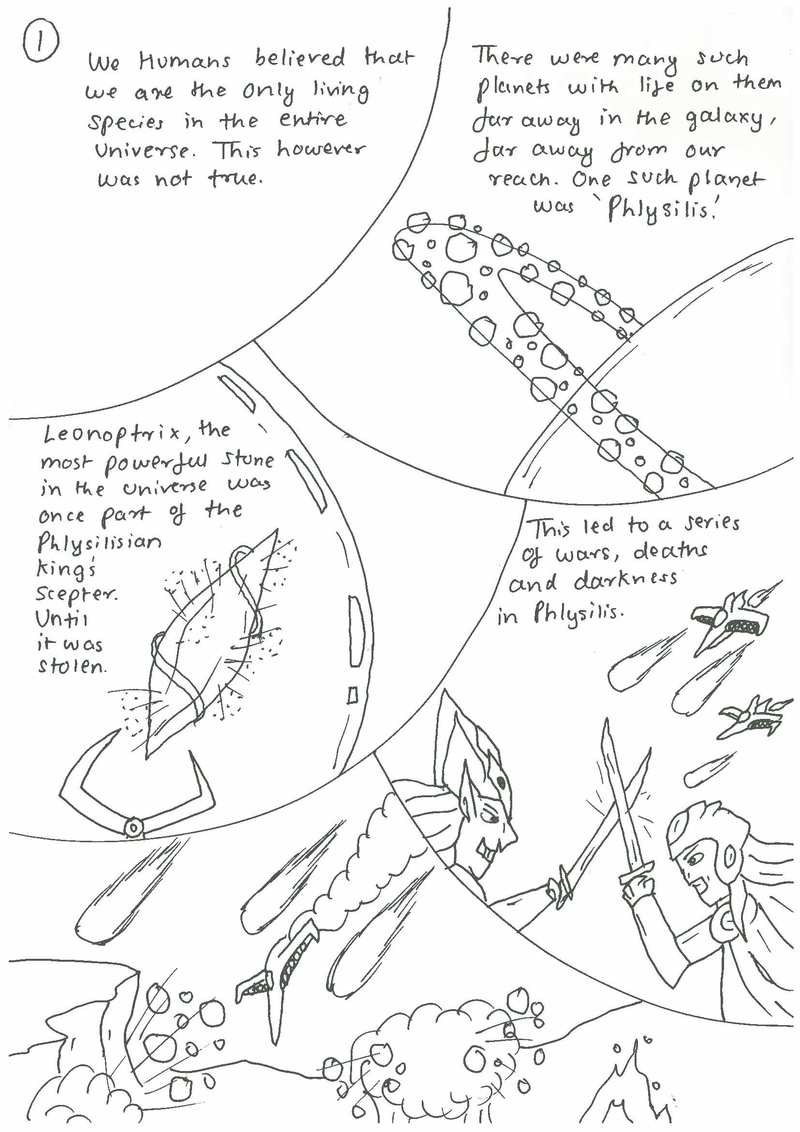 1
We Humans believed that
we are the only living
species in the entire
Universe. This however
was not true.
There were many such
planets with life on them
far away in the galaxy,
far away from our
reach. One such planet
was 'Phlysilis.'
Leonoptrix, the
most powerful stone
in the universe was
once part of the
Phlysilisian
king's
Scepter.
Until
it was
stolen.
This led to a series
of wars, deaths
and darkness
in Phlysilis.